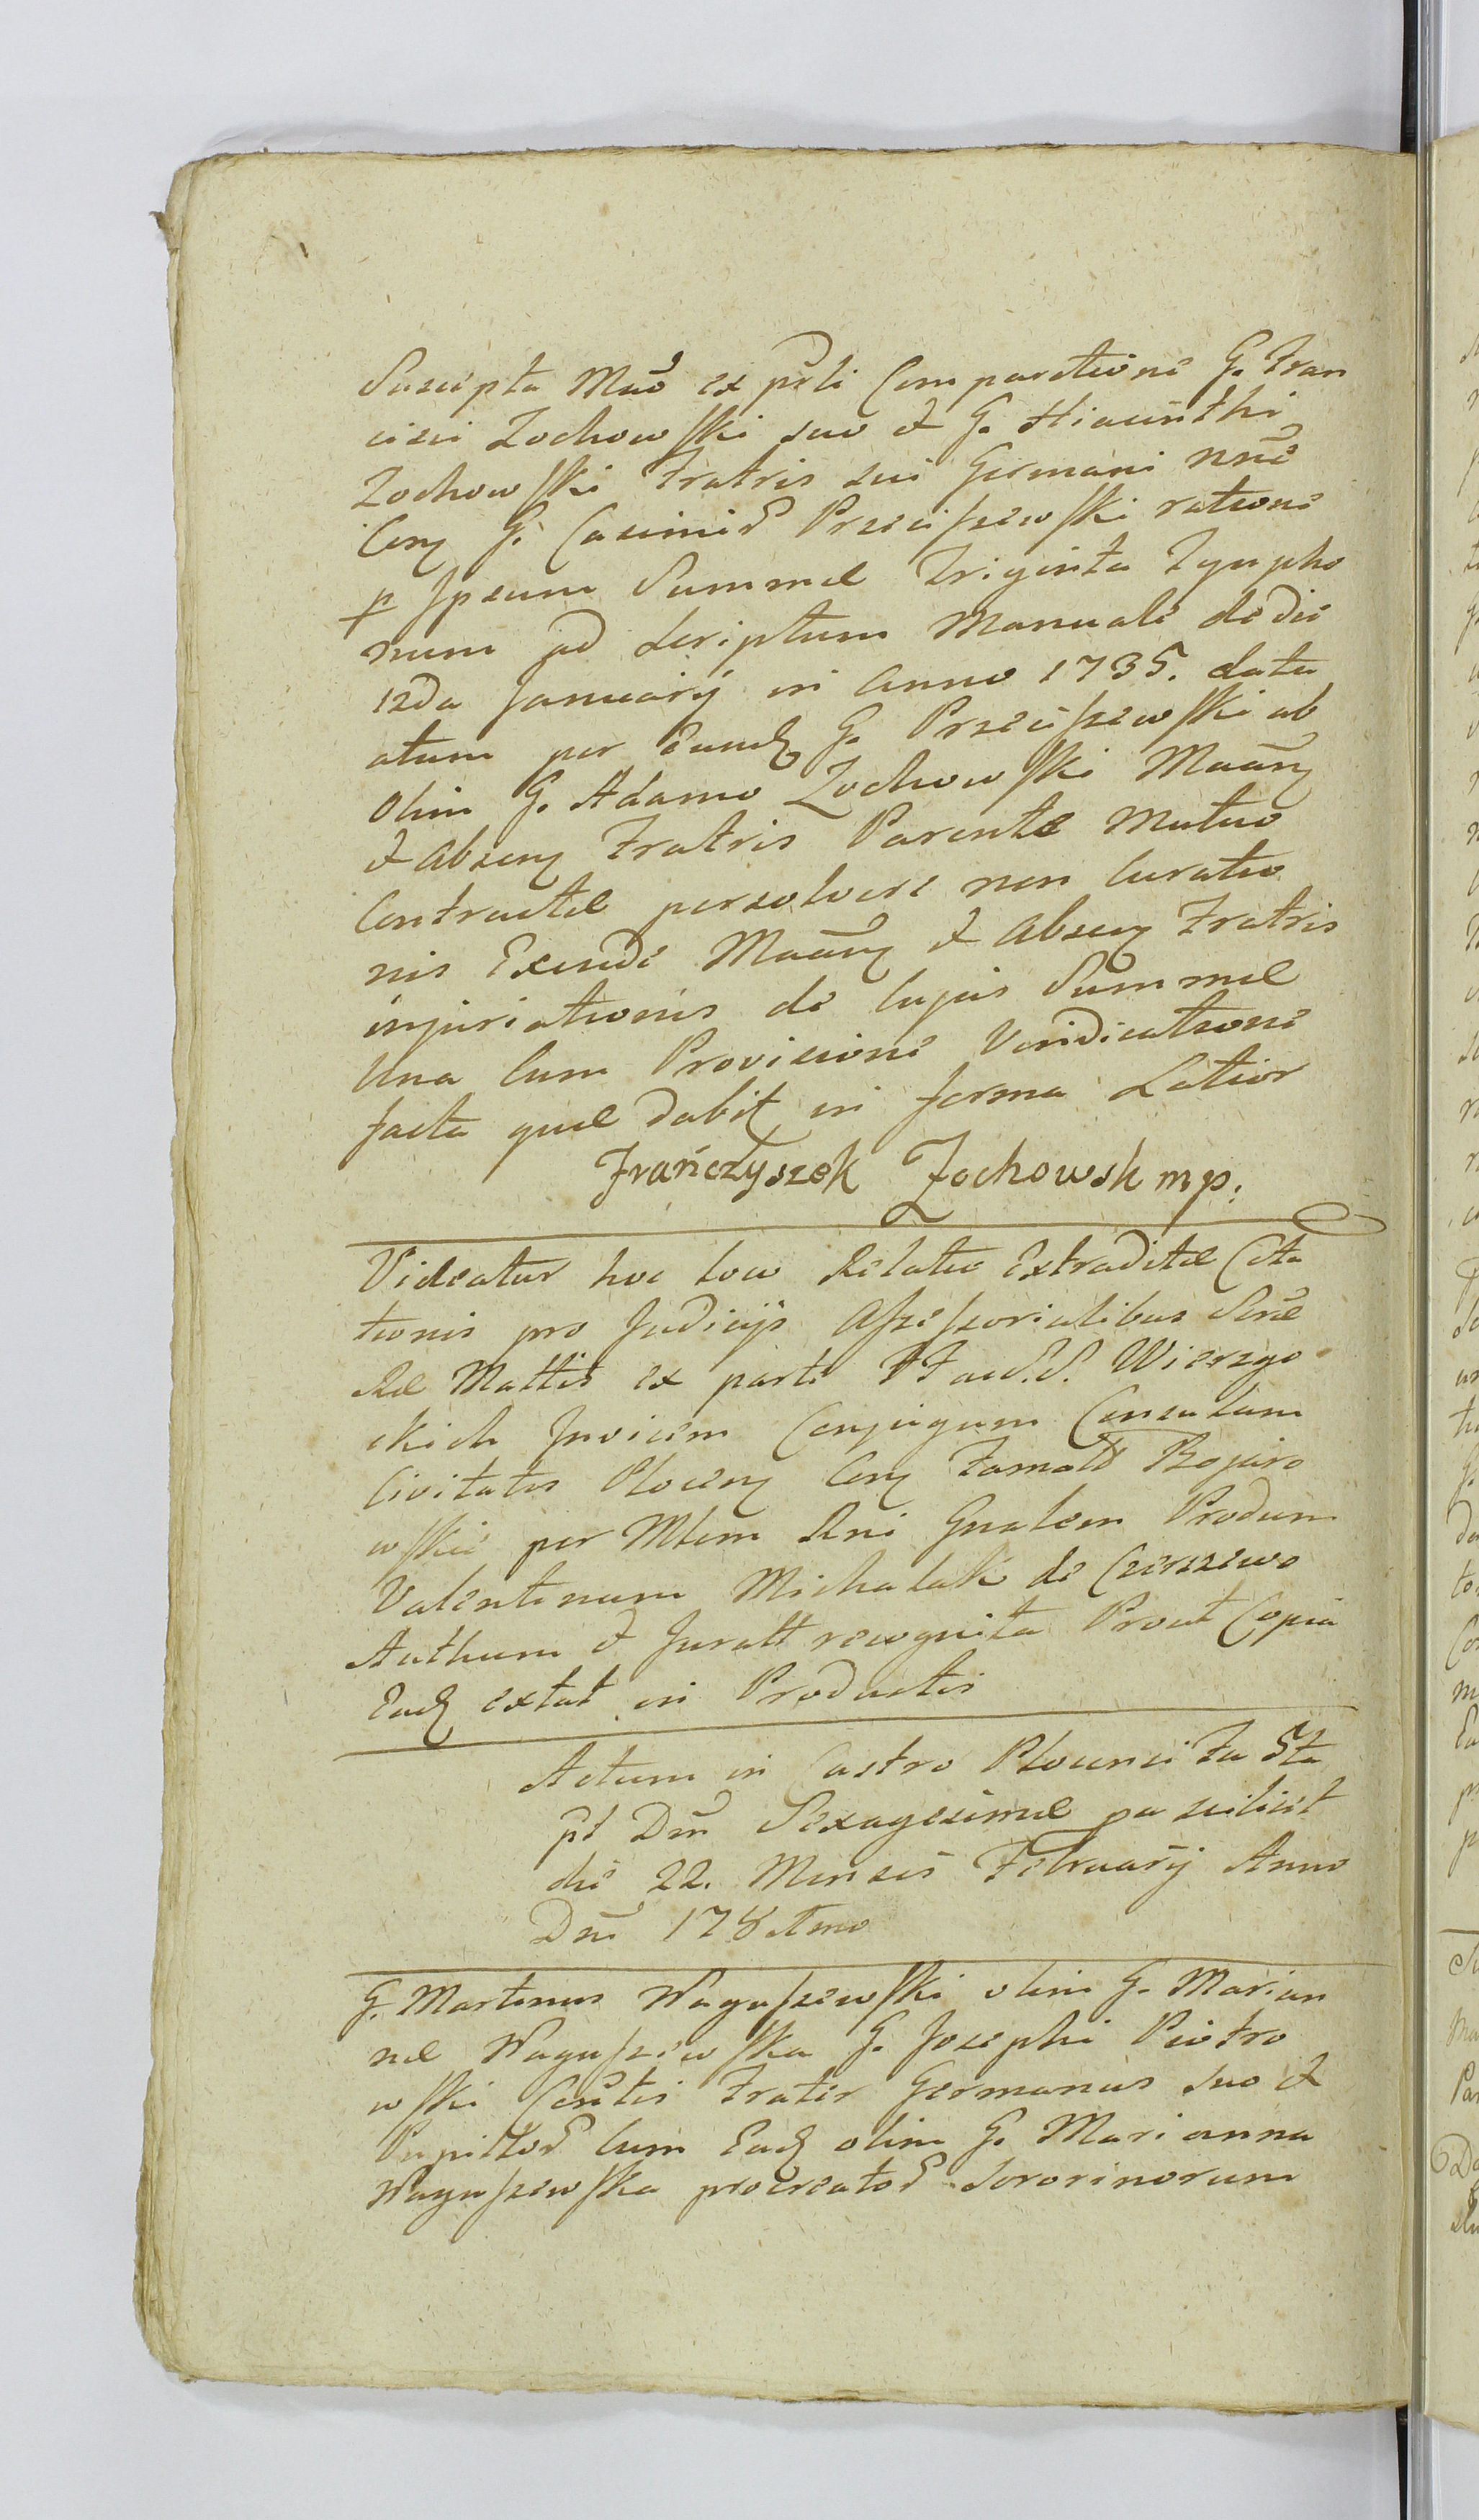 Suscepta Mãõ ex pñti Comparitione G. Fran
cisci Zochowski suo & G. Hiacinthi
Zochowski Fratris sui Germani nñe
Con. G. Casimir Przeciszewski ratione
p Ipsum Summæ Triginta Tympho
num ad Scriptum Manuale de die
12da January in Anno 1735. datu
atum per Eund G. Przeciszewski ab
Olim G. Adamo Zochowski Maãn
& absen Fratris Parente Mutuo
Contractæ persolvere non Curatio
nis Exinde Maãn & absen Fratris
injuriationis de cujus Summæ
Una Cum Provisione Vindicatione
facta quæ dabit in forma Latior
Frańczyszek Zochowsk mp.
Videatur hoc loco Relatio Extraditæ Cita
tionis pro Judicijs Assessorialibus Sacræ
Ræ Mattis ex parte Wierzgo
ckich Invicem Conjugum Consulum
Civitatis Plocen Con Famatt
wskie per Mtem Rni Gnalem Produm
Valentinum Michalak de Czerszewo
Authum & Juratt recognita Prout Copia
Ead extat in Productis
Actum in Castro Plocensi Fa 5ta
pt Dm̃ Sexagesimæ pa scilicet
die 22. Mensis February Anno
Dñi 178
G. Martinus Waguszewski olim G. Marian
næ Waguszewska G. Josephi Piotro
wski Cõntis Frater Germanus suo &
Pupillor Cum Ead olim G. Marianna
Waguszewska procreator Sororinorum